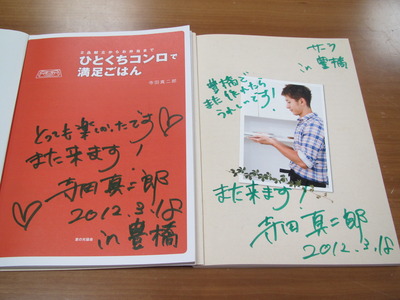 ひとくちコンロで
満足ごはん
寺田真二郎
とっても楽しかったです♡
また来ます!
寺田真二郎
2012.3.18
in 豊橋
サーラ
in 豊橋
豊橋で
また作れたら
うれしいです!
また来ます!
寺田真二郎
2012.3.18